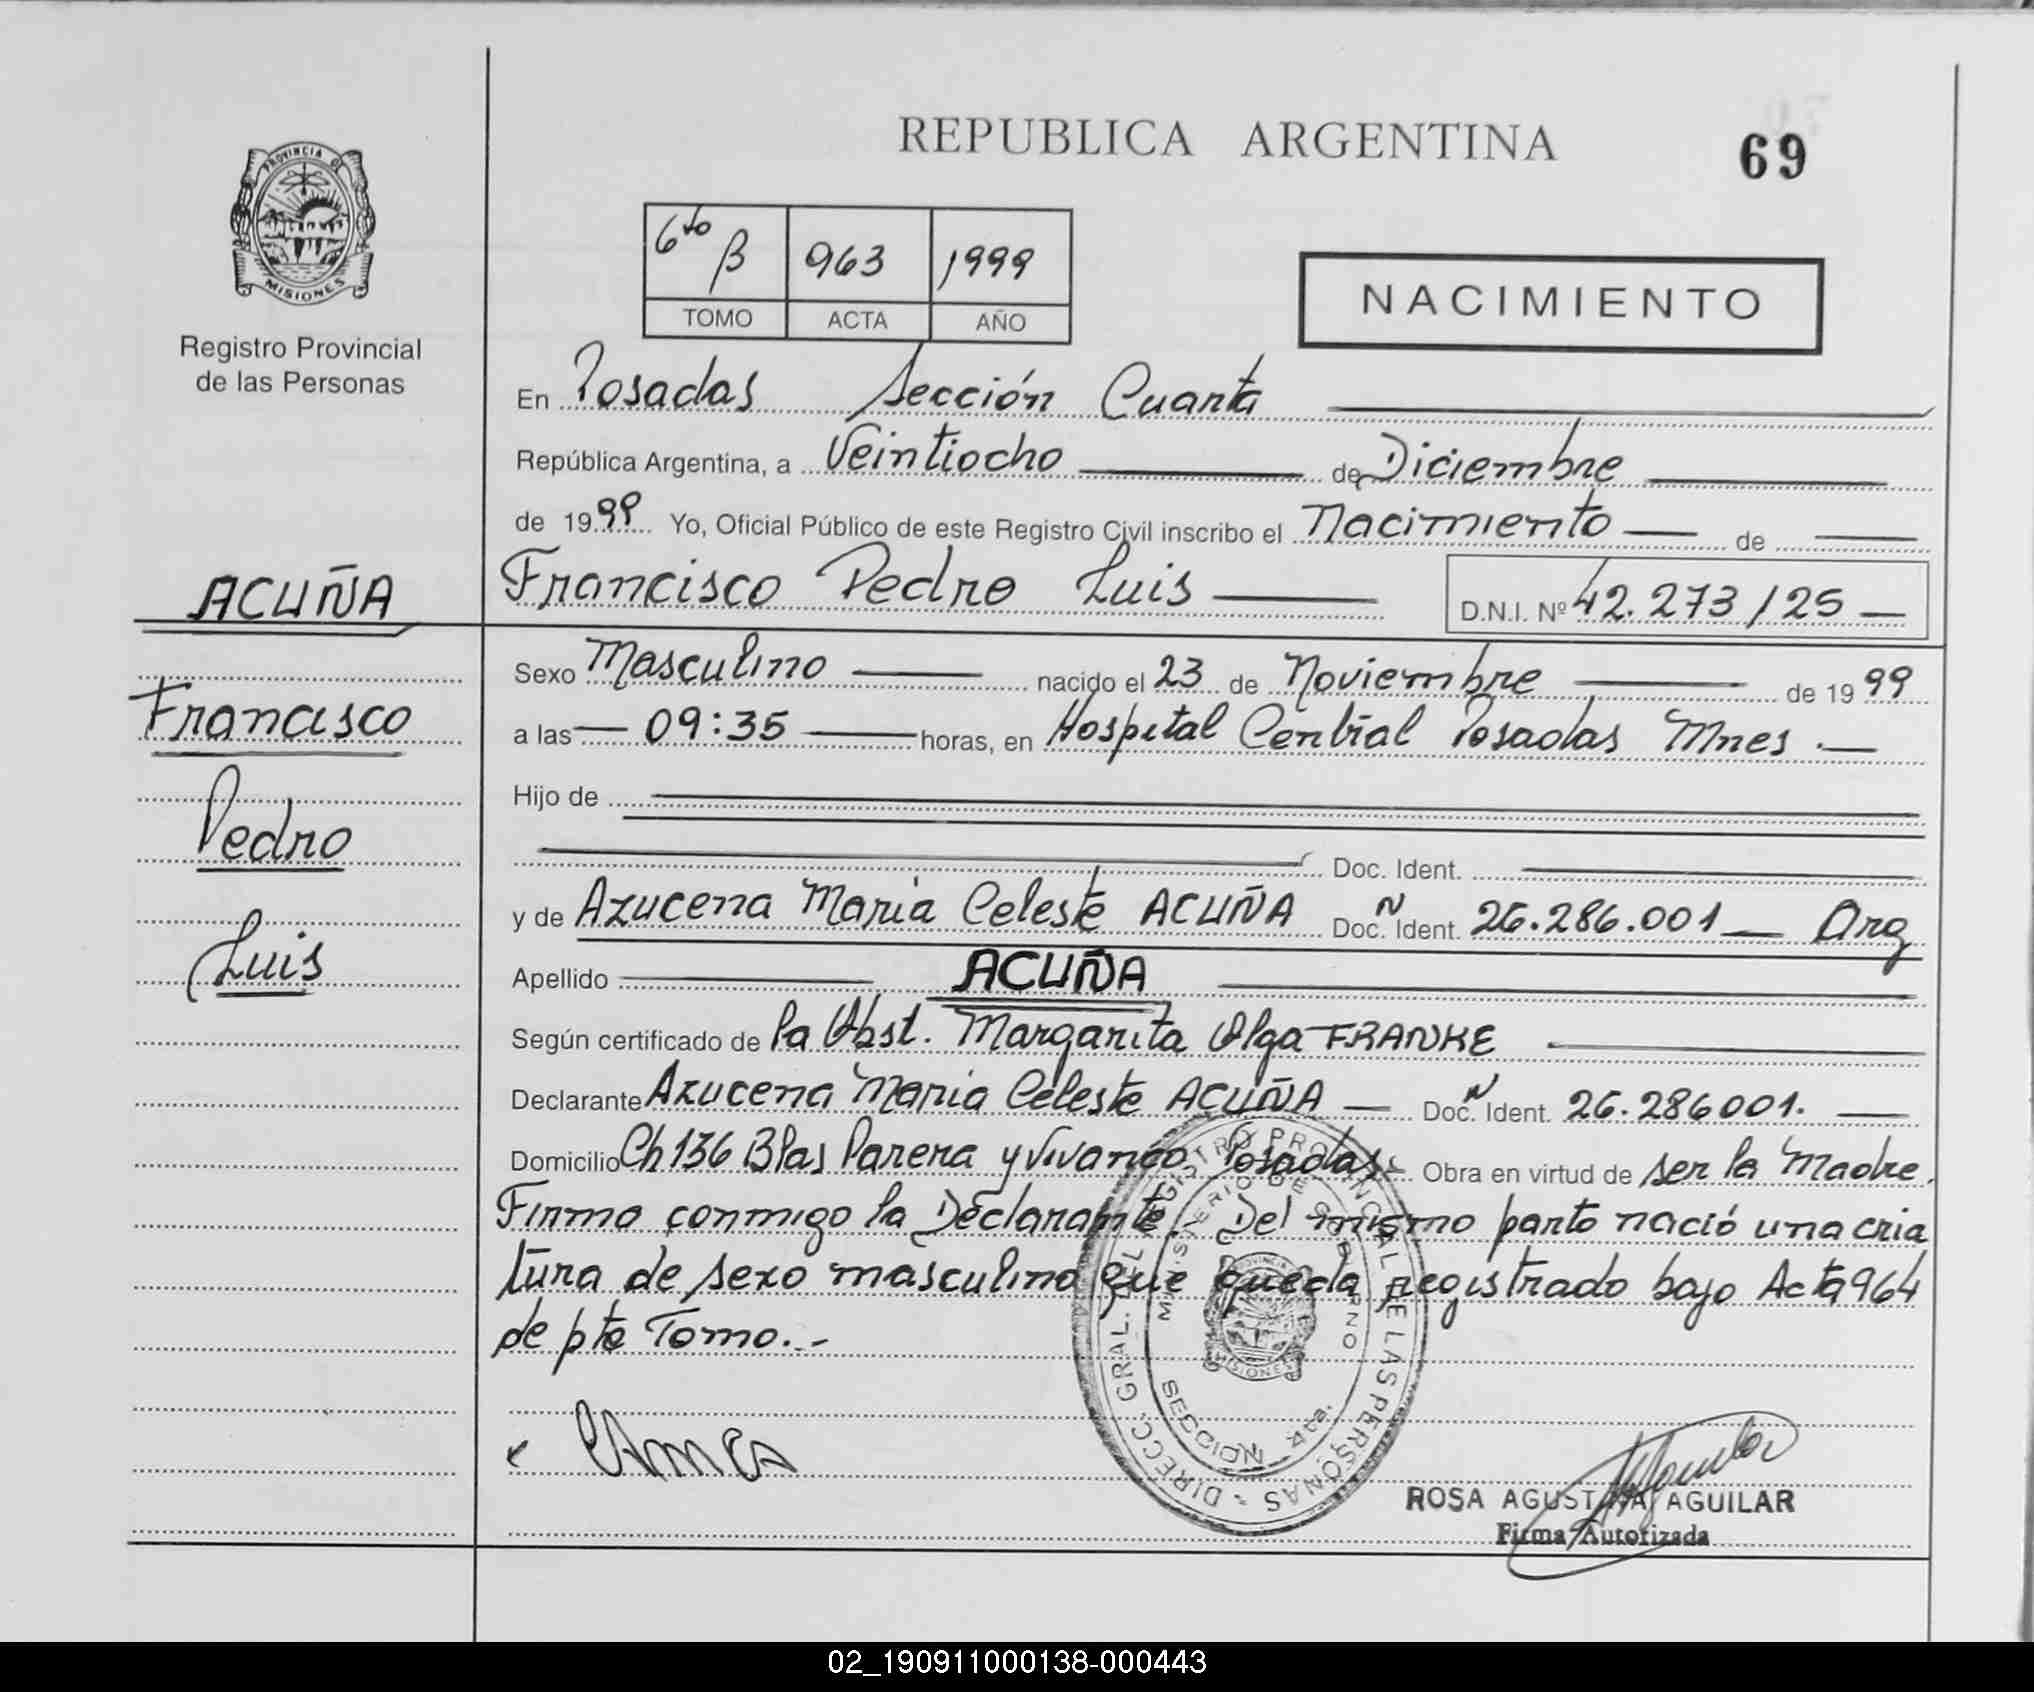 REPUBLICA ARGENTINA
69
PROVINCIA DE
MISIONES
Registro Provincial
de las Personas
6to B 963 1999
TOMO ACTA AÑO
NACIMIENTO
En Posadas Sección Cuarta
República Argentina, a Veintiocho de Diciembre
de 1999 Yo, Oficial Público de este Registro Civil inscribo el Nacimiento de
Francisco Pedro Luis D.N.I. Nº 42.273/25
ACUÑA
Francisco
Pedro
Luis
Sexo Masculino nacido el 23 de Noviembre de 1999
a las 09:35 horas, en Hospital Central Posadas Mnes.
Hijo de
Doc. Ident.
y de Azucena Maria Celeste ACUÑA Doc. Ident. N 26.286.001 Arg
Apellido ACUÑA
Según certificado de la Obst. Margarita Olga FRANKE
Declarante Azucena Maria Celeste ACUÑA Doc. Ident. N 26.286001.
Domicilio Ch 136 Blas Parera y Vivanco. Posadas Obra en virtud de ser la Madre.
Firma conmigo la Declarante. Del mismo parto nació una cria
tura de sexo masculino que queda registrado bajo Acta 964
de pte Tomo.-
DIRECC. GRAL. DEL REGISTRO PROVINCIAL DE LAS PERSONAS
MINISTERIO DE GOBIERNO
SECCION 4ta.
MISIONES
ROSA AGUSTINA AGUILAR
Firma Autorizada
02_190911000138-000443